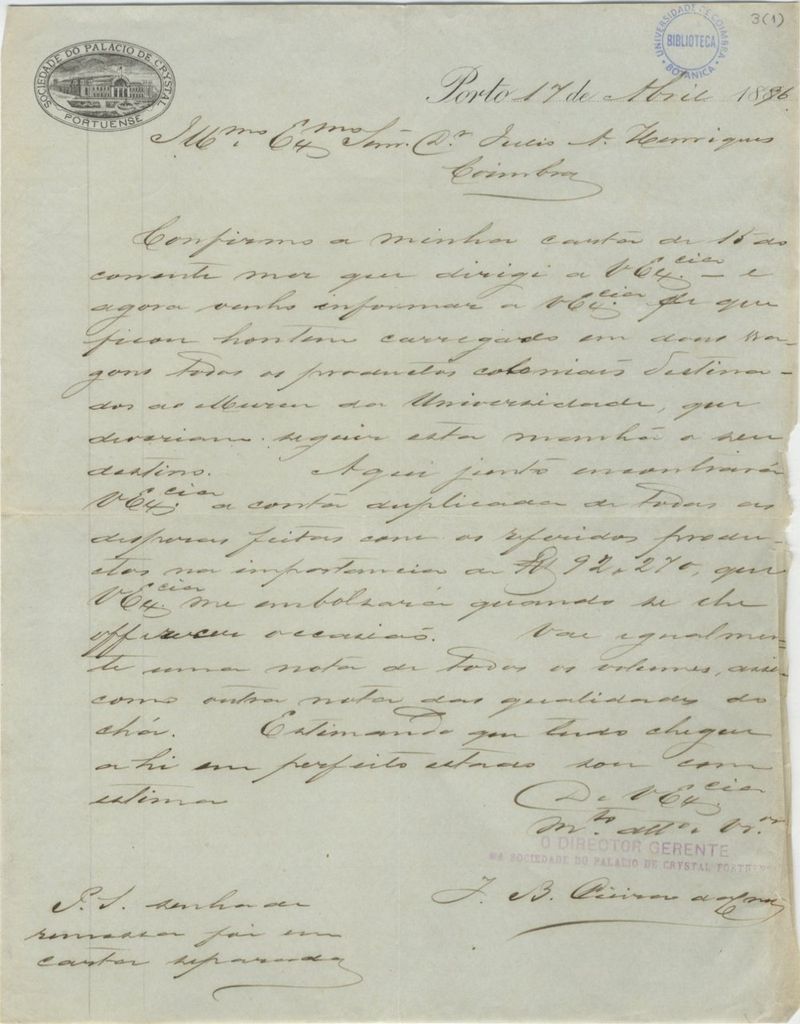 3(1)
UNIVERSIDADE DE COIMBRA
BIBLIOTECA
BOTANICA
SOCIEDADE DO PALACIO DE CRYSTAL
PORTUENSE
Porto 17 de Abril 1886
Illmo. Exmo. Snr. Dr. Julio A. Henriques
Coimbra
Confirmo a minha carta de 15 do
corrente mez que dirigi a VExcia. – e
agora venho informar a VExcia. de que
ficou hontem carregado em dous wa-
gons todos os productos coloniais destina-
dos ao Museu da Universidade, que
deveriam seguir esta manhã o seu
destino. Aqui junto encontrará
VExcia. a conta duplicada de todas as
despezas feitas com os referidos produ-
ctos na importancia de 92.270, que
VExcia. me embolsará quando se lhe
offerecer occasião. Vae igualmen-
te uma nota de todos os volumes, assim
como outra nota das qualidades do
chá. Estimando que tudo chegue
ahi em perfeito estado sou com
estima
De VExcia.
Mto. atto. e Vor.
O DIRECTOR GERENTE
DA SOCIEDADE DO PALACIO DE CRYSTAL PORTUENSE
J. B.
P.S. senha de
remessa foi em
carta separada